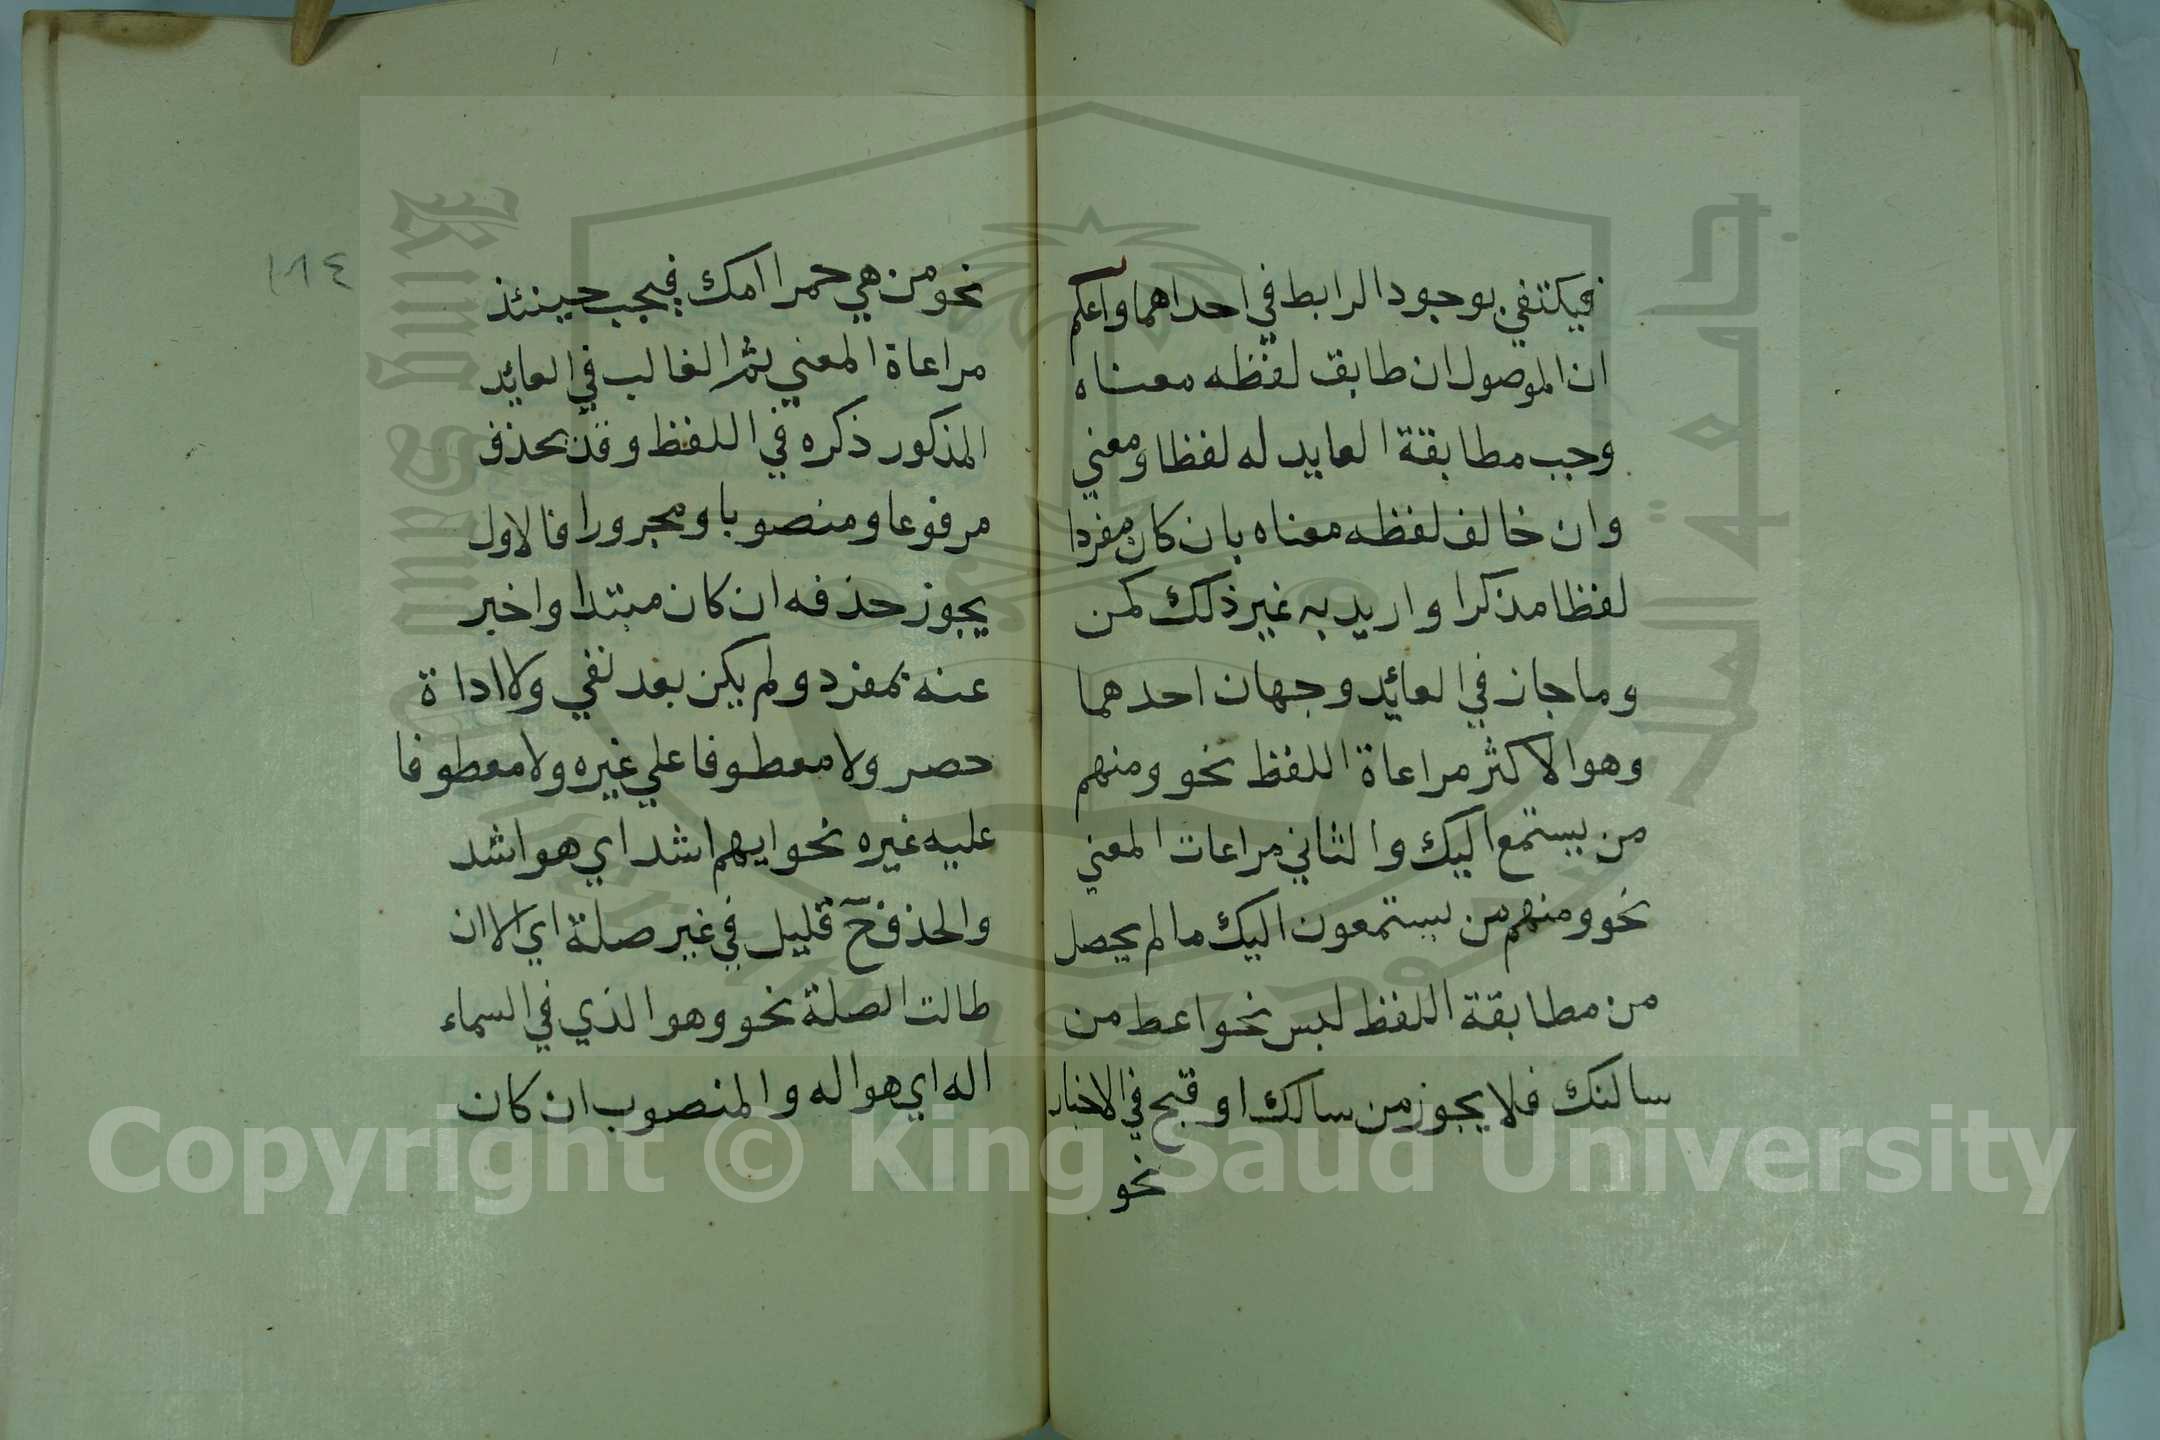 فيكتفي بوجود الرابط في احداهما واعلم
ان الموصول ان طابق لفظه معناه
وجب مطابقة العايد له لفظا ومعني
وان خالف لفظه معناه بان كان مفردا
لفظا مذكرا واريد به غير ذلك كمن
وما جاز في العائد وجهان احدهما
وهو الاكثر مراعاة اللفظ نحو ومنهم
من يستمع اليك والثاني مراعات المعني
نحو ومنهم من يستمعون اليك ما لم يحصل
من مطابقة اللفظ لبس نحو اعط من
سالتك فلا يجوز من سالك او قبح في الاخبار
نحو
١٨٤
نحو من هي حمرا امك فيجب حينئذ
مراعاة المعني ثم الغالب في العائد
المذكور ذكره في اللفظ وقد يحذف
مرفوعا ومنصوبا ومجرورا فالاول
يجوز حذفه ان كان مبتدا واخبر
عنه بمفرد ولم يكن بعد نفي ولا اداة
حصر ولا معطوفا علي غيره ولا معطوفا
عليه غيره نحو ايهم اشد اي هو اشد
والحذف ح قليل في غير صلة اي الا ان
طالت الصلة نحو وهو الذي في السماء
اله اي هو اله والمنصوب ان كان
جامعة الملك سعود
King Saud University
1957
Copyright © King Saud University